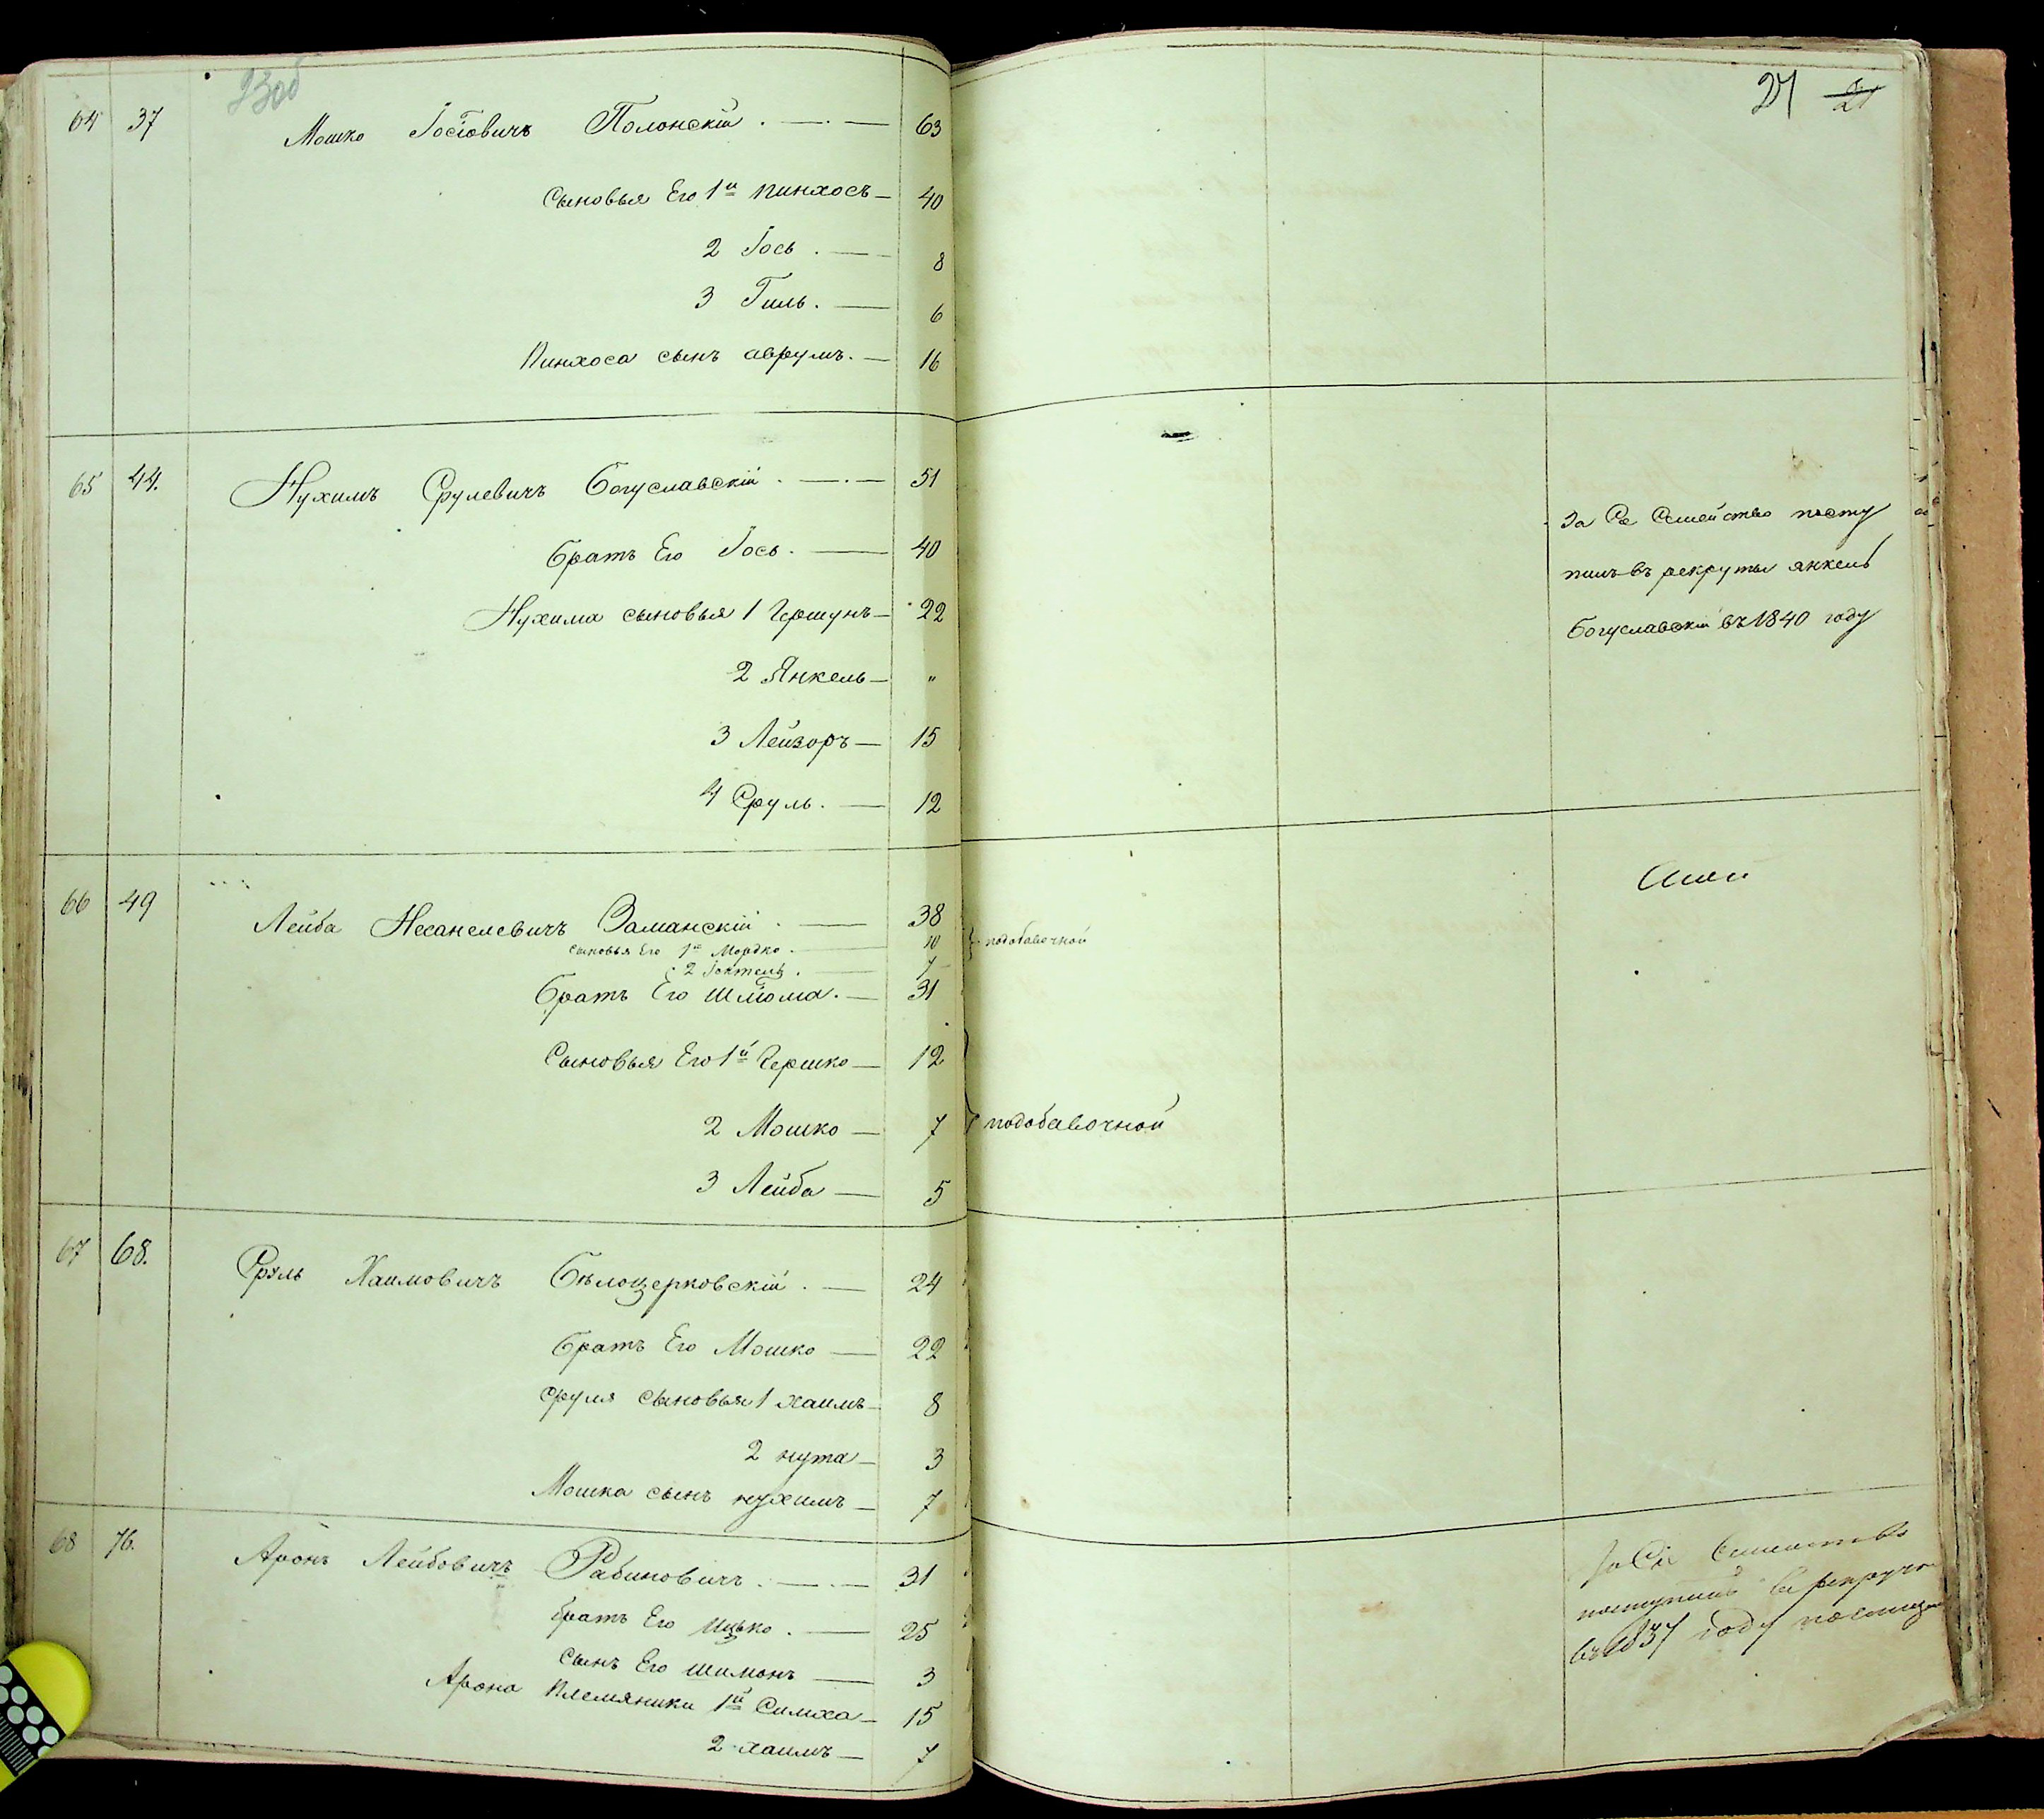 23об
27 21
64 37 Мошко Іосіовичъ Полонскій 63
Сыновья Его 1й Пинхосъ 40
2 Іось 8
3 Гиль 6
Пинхоса сынъ Аврумъ 16
65 44. Нухимъ Срулевичъ Богуславскій 51
За Се Семейство посту
братъ Его Іось 40
пилъ въ рекруты Янкель
Нухима сыновья 1 Гершунъ 22
Богуславскій въ 1840 году
2 Янкель "
3 Лейзоръ 15
4 Сруль 12
66 49 Лейба Несанелевичъ Заманскій 38
сыновья Его 1й Мордко 10 подобавочной
2 Іонтель 7
братъ Его Шліома 31
Сыновья Его 1й Гершко 12
2 Мошко 7 подобавочной
3 Лейба 5
67 68. Сруль Хаимовичъ Бѣлоцерковскій 24
братъ Его Мошко 22
Сруля сыновья 1 Хаимъ 8
2 Нута 3
Мошка сынъ Нухимъ 7
68 76. Аронъ Лейбовичъ Рабиновичъ 31
За Сіе Семейство
братъ Его Ицько 25
поступилъ въ рекруты
въ 1837 году
Сынъ Его Шимонъ 3
Арона Племяники 1й Симха 15
2 Хаимъ 7